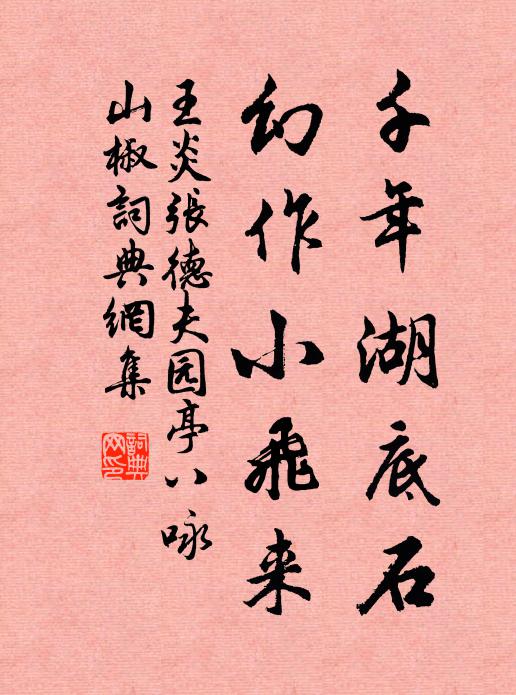 千年湖底石
幻作小飛来
王炎張德夫园亭八咏
山椒詞典網集
詞典网印